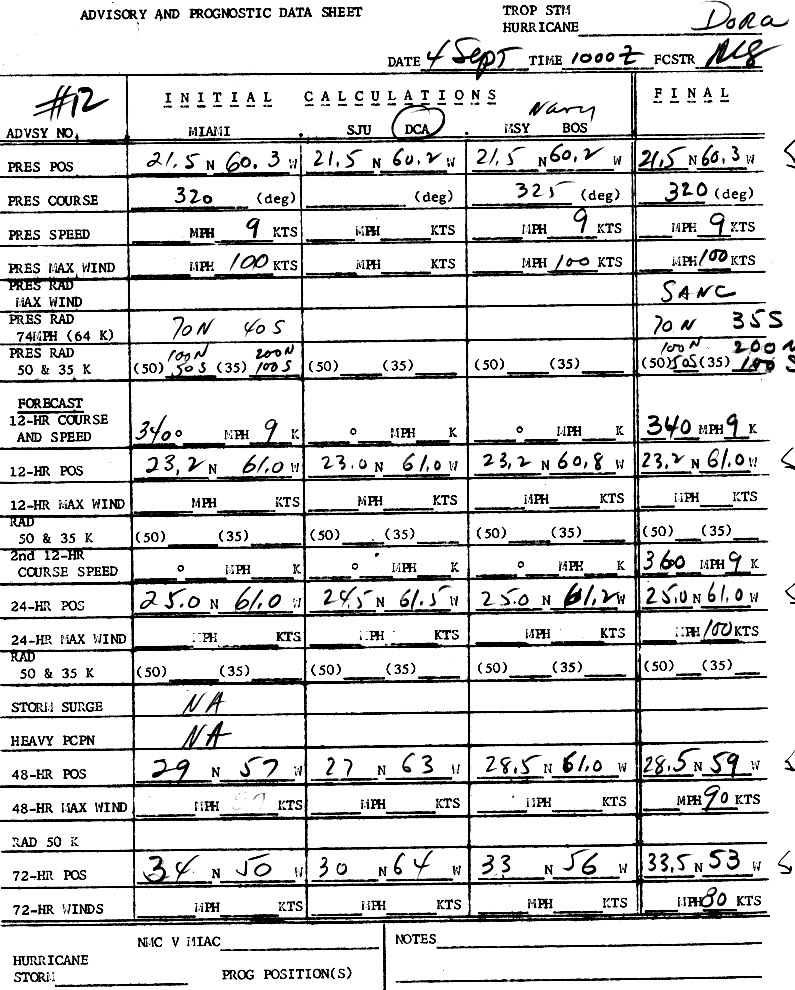 ADVISORY AND PROGNOSTIC DATA SHEET TROP STM
HURRICANE Dora
DATE 4 Sept TIME 1000Z FCSTR
#12 INITIAL CALCULATIONS Navy FINAL
ADVSY NO. MIAMI . SJU DCA . MSY BOS
PRES POS 21.5 N 60.3 W 21.5 N 60.2 W 21.5 N 60.2 W 21.5 N 60.3 W
PRES COURSE 320 (deg) (deg) 325 (deg) 320 (deg)
PRES SPEED MPH 9 KTS MPH KTS MPH 9 KTS MPH 9 KTS
PRES MAX WIND MPH 100 KTS MPH KTS MPH 100 KTS MPH 100 KTS
PRES RAD
MAX WIND SANC
PRES RAD
74MPH (64 K) 70N 40S 70N 35S
PRES RAD 100N 200N 100N 200N
50 & 35 K (50) 50S (35) 100S (50) (35) (50) (35) (50) 50S (35) 100 S
FORECAST
12-HR COURSE
AND SPEED 340° MPH 9 K ° MPH K ° MPH K 340 MPH 9 K
12-HR POS 23.2 N 61.0 W 23.0 N 61.0 W 23.2 N 60.8 W 23.2 N 61.0 W
12-HR MAX WIND MPH KTS MPH KTS MPH KTS MPH KTS
RAD
50 & 35 K (50) (35) (50) (35) (50) (35) (50) (35)
2nd 12-HR
COURSE SPEED ° MPH K ° MPH K ° MPH K 360 MPH 9 K
24-HR POS 25.0 N 61.0 W 24.5 N 61.5 W 25.0 N 61.2 W 25.0 N 61.0 W
24-HR MAX WIND MPH KTS MPH KTS MPH KTS MPH 100 KTS
RAD
50 & 35 K (50) (35) (50) (35) (50) (35) (50) (35)
STORM SURGE NA
HEAVY PCPN NA
48-HR POS 29 N 57 W 27 N 63 W 28.5 N 61.0 W 28.5 N 59 W
48-HR MAX WIND MPH KTS MPH KTS MPH KTS MPH 90 KTS
RAD 50 K
72-HR POS 34 N 50 W 30 N 64 W 33 N 56 W 33.5 N 53 W
72-HR WINDS MPH KTS MPH KTS MPH KTS MPH 80 KTS
NMC V MIAC NOTES
HURRICANE
STORM PROG POSITION(S)